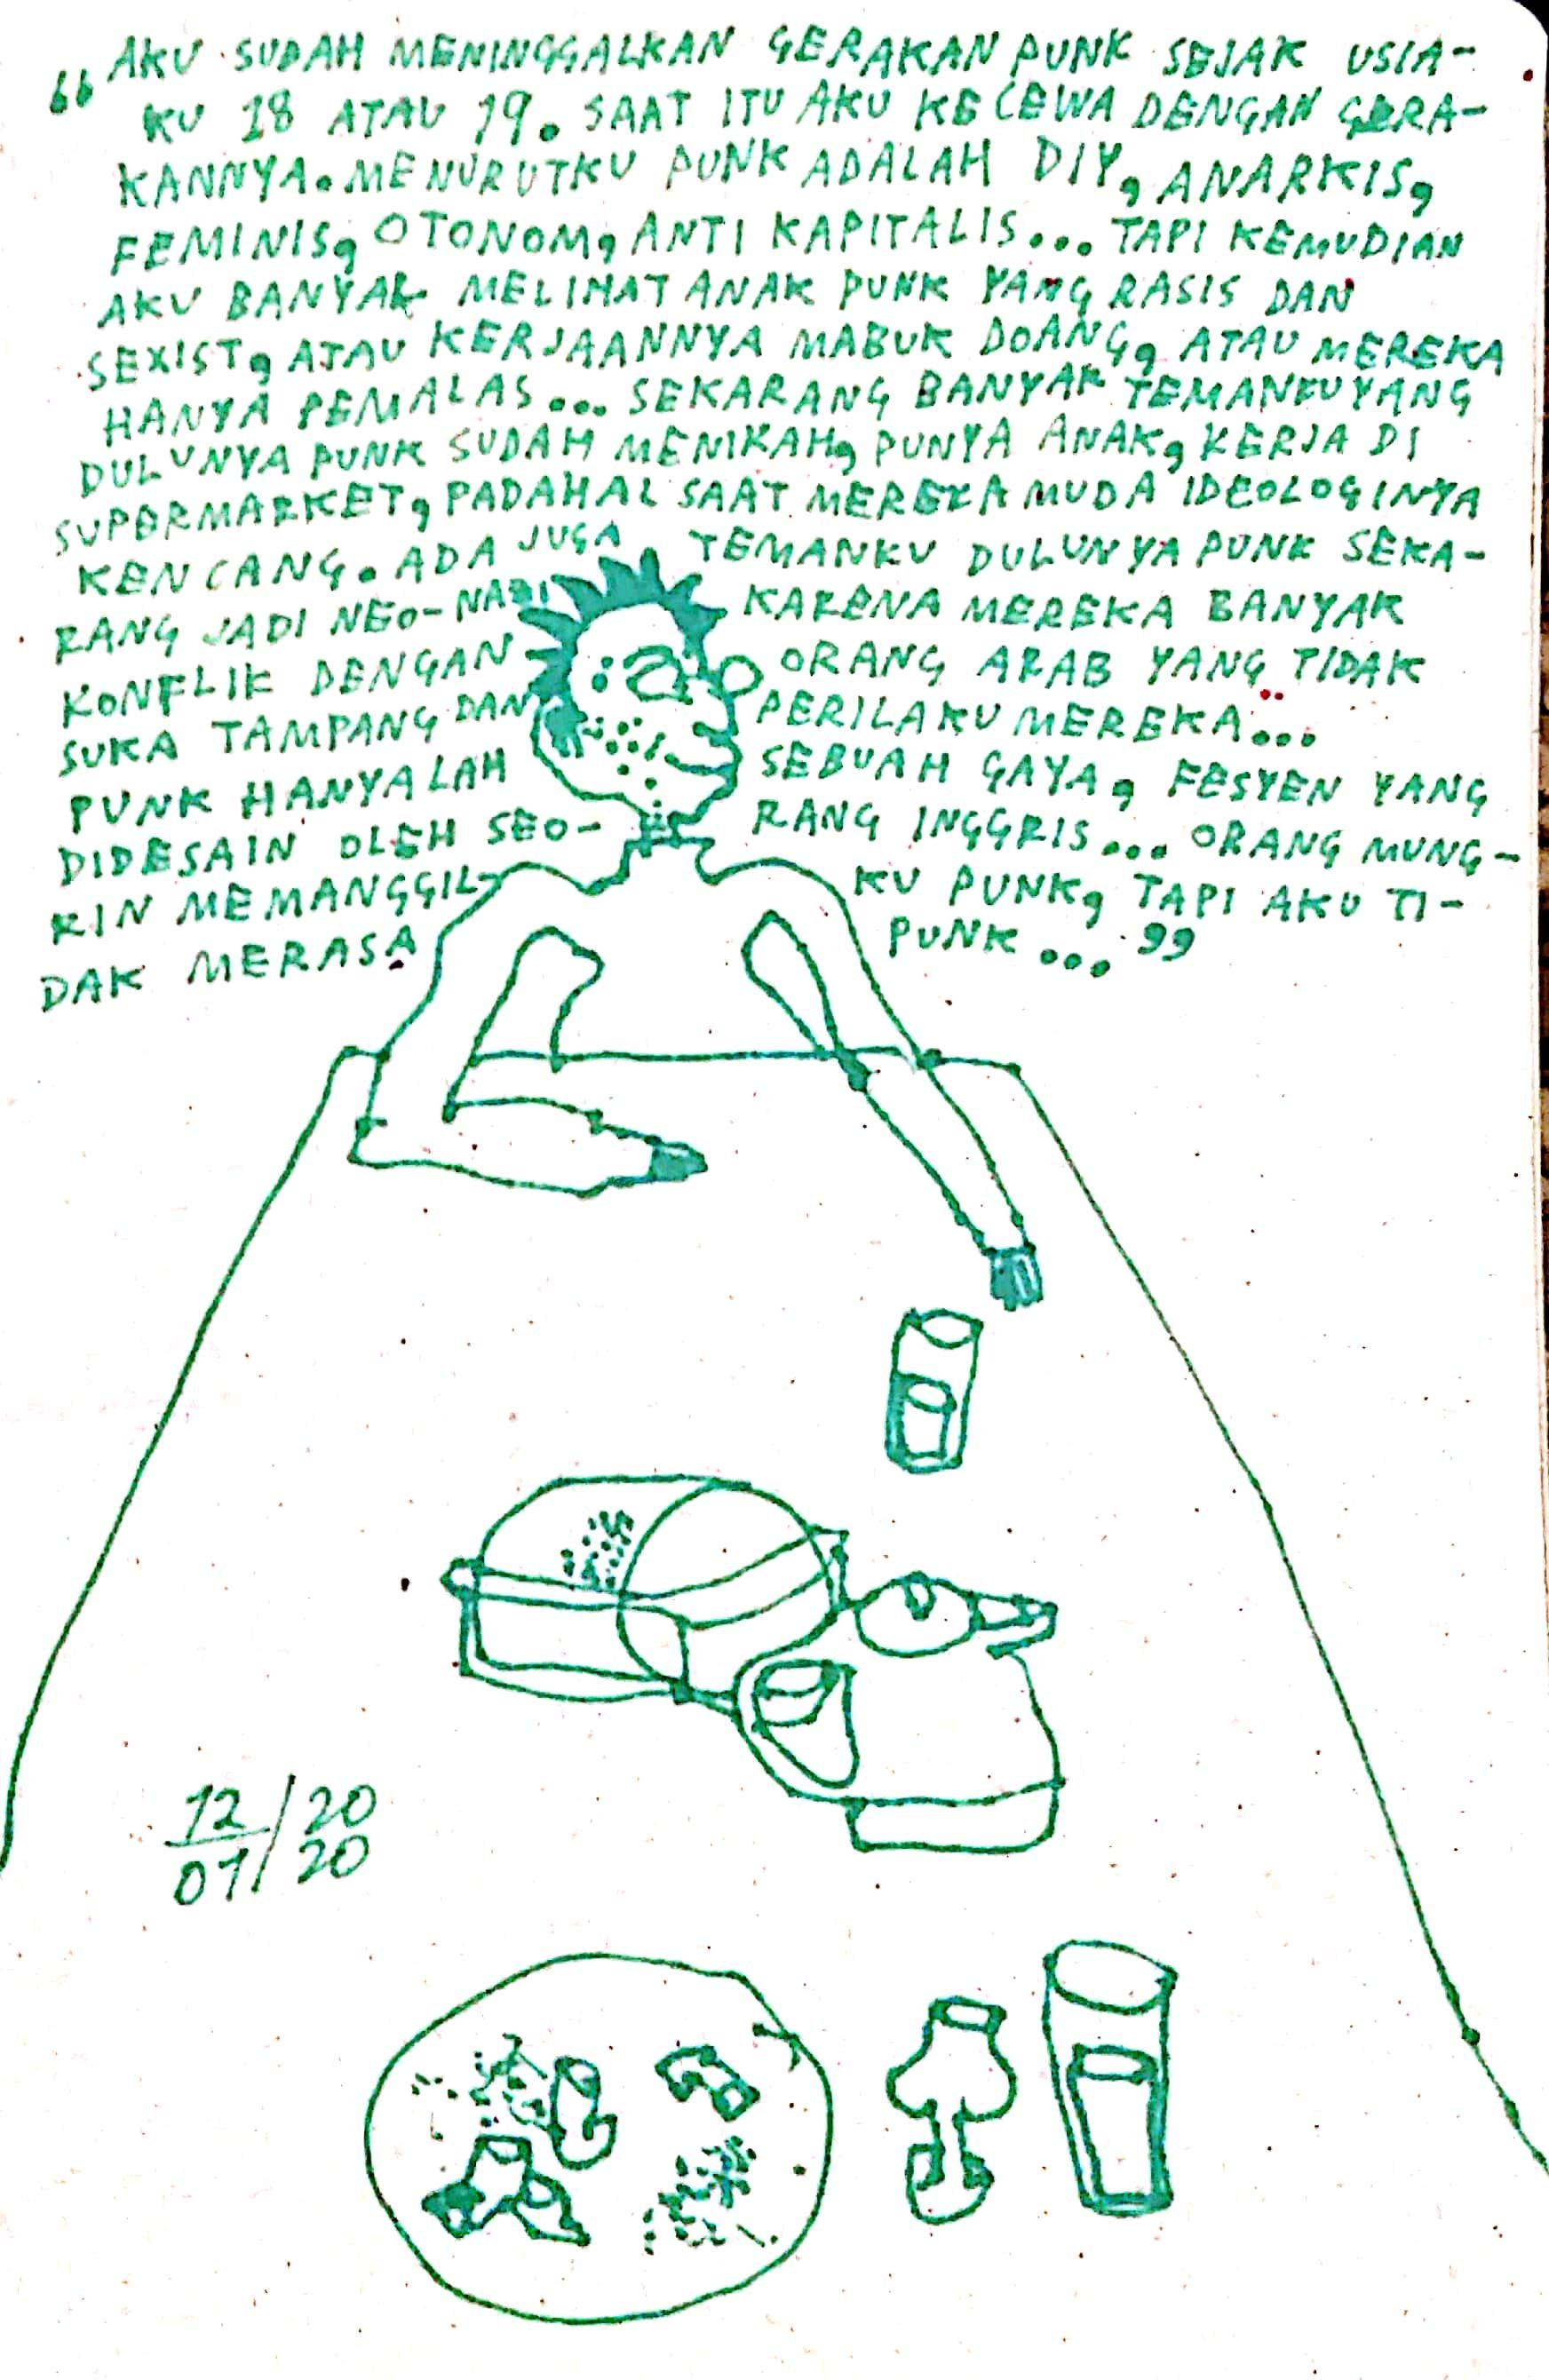 “AKU SUDAH MENINGGALKAN GERAKAN PUNK SEJAK USIA-
KU 18 ATAU 19. SAAT ITU AKU KECEWA DENGAN GERA-
KANNYA. MENURUTKU PUNK ADALAH DIY, ANARKIS,
FEMINIS, OTONOM, ANTI KAPITALIS... TAPI KEMUDIAN
AKU BANYAK MELIHAT ANAK PUNK YANG RASIS DAN
SEXIST, ATAU KERJAANNYA MABUK DOANG, ATAU MEREKA
HANYA PEMALAS... SEKARANG BANYAK TEMANKU YANG
DULUNYA PUNK SUDAH MENIKAH, PUNYA ANAK, KERJA DI
SUPERMARKET, PADAHAL SAAT MEREKA MUDA IDEOLOGINYA
KENCANG. ADA JUGA TEMANKU DULUNYA PUNK SEKA-
RANG JADI NEO-NAZI KARENA MEREKA BANYAK
KONFLIK DENGAN ORANG ARAB YANG TIDAK
SUKA TAMPANG DAN PERILAKU MEREKA...
PUNK HANYALAH SEBUAH GAYA, FESYEN YANG
DIDESAIN OLEH SEO- RANG INGGRIS... ORANG MUNG-
KIN MEMANGGIL KU PUNK, TAPI AKU TI-
DAK MERASA PUNK...”
12/20
01/20